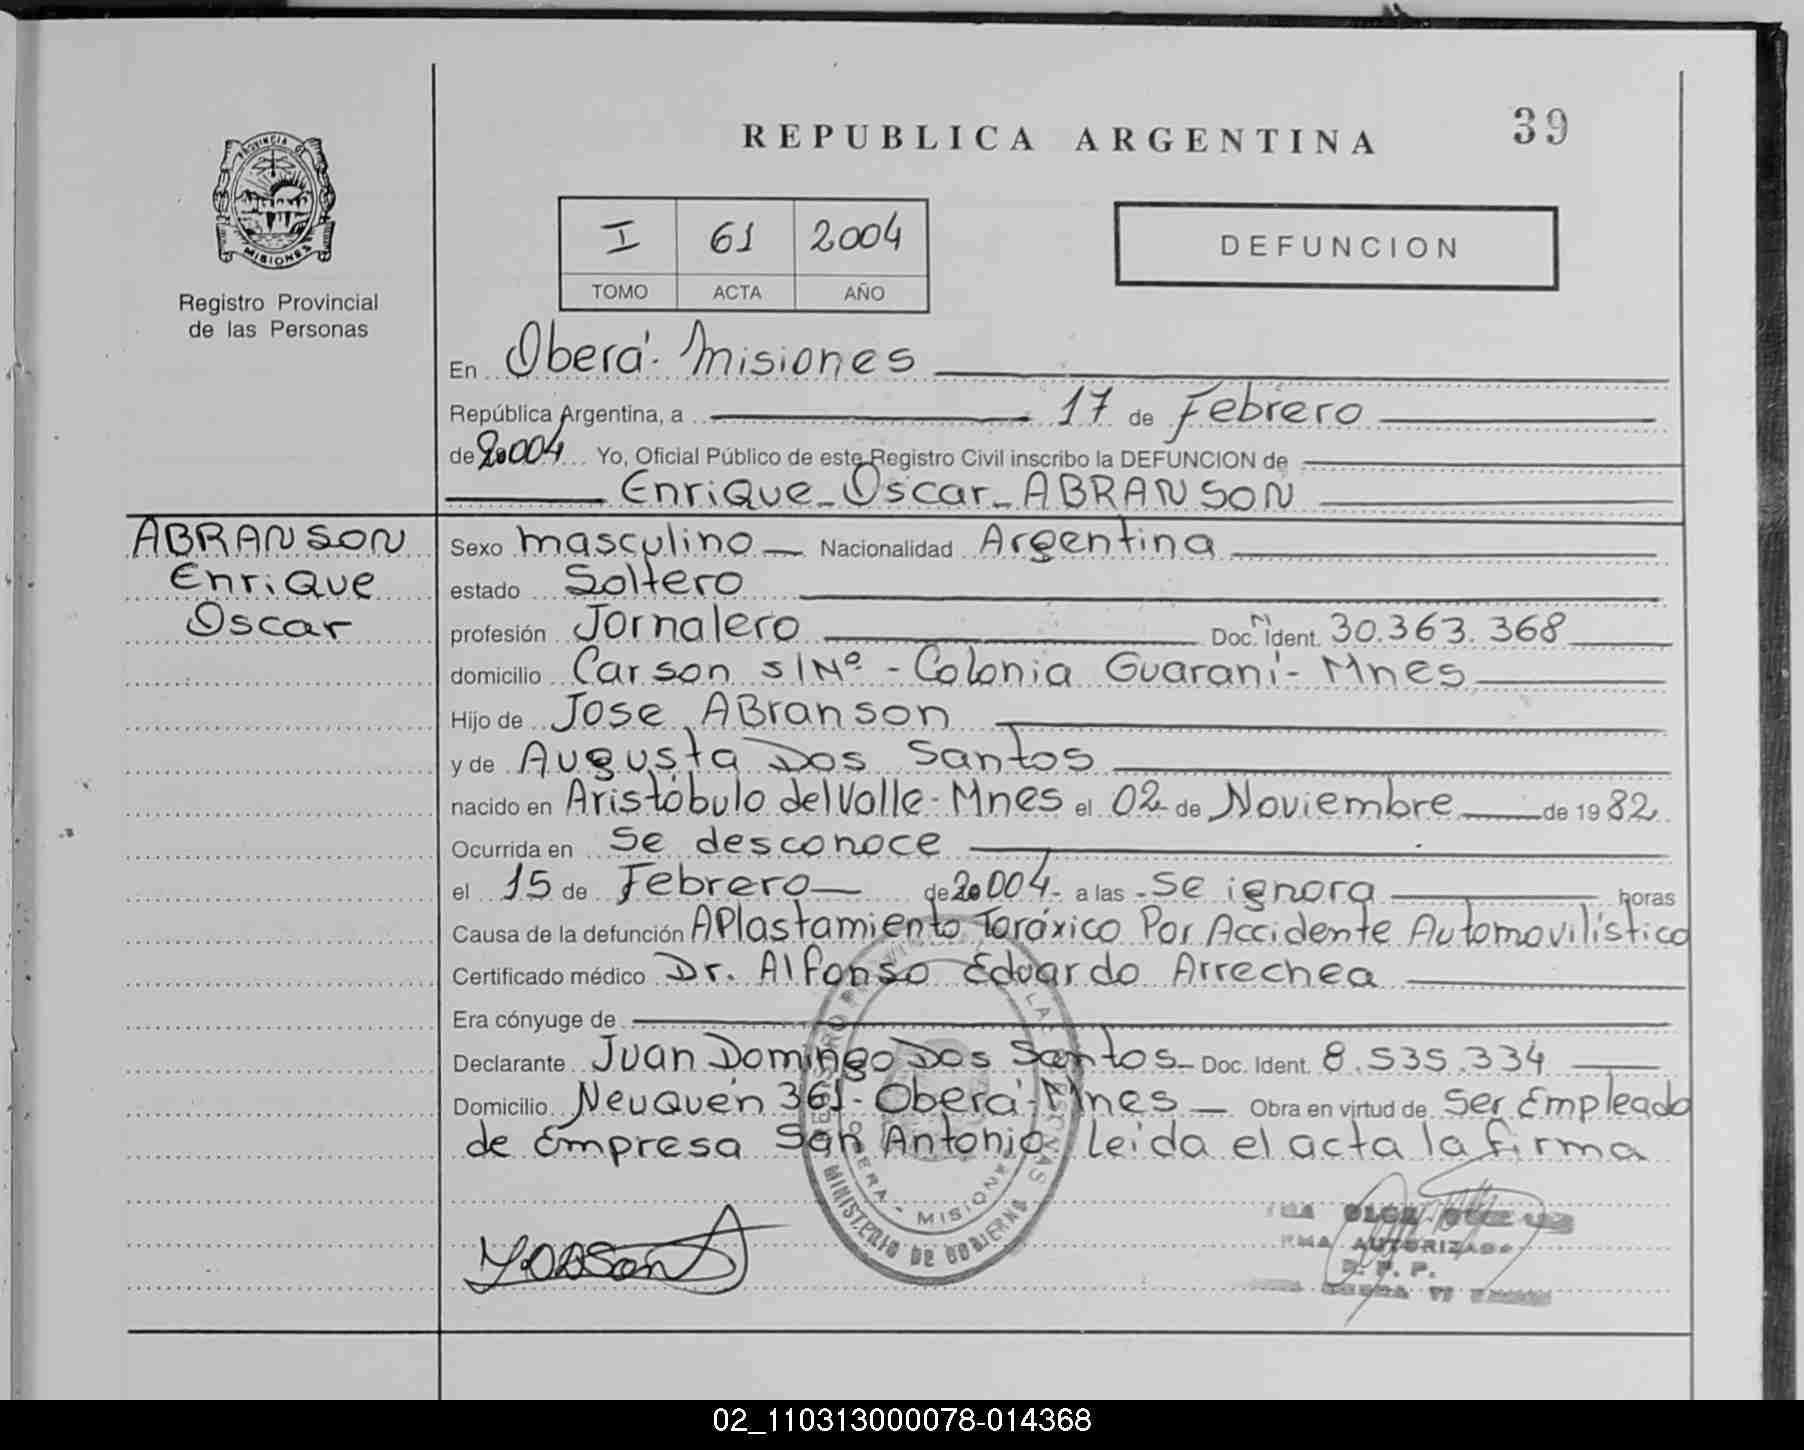 REPUBLICA ARGENTINA
39
PROVINCIA DE
MISIONES
Registro Provincial
de las Personas
I 61 2004
TOMO ACTA AÑO
DEFUNCION
En Oberá - Misiones
República Argentina, a 17 de Febrero
de 2004 Yo, Oficial Público de este Registro Civil inscribo la DEFUNCION de
Enrique - Oscar - ABRANSON
ABRANSON
Enrique
Oscar
Sexo masculino Nacionalidad Argentina
estado Soltero
profesión Jornalero Doc. N Ident. 30.363.368
domicilio Carson s/Nº - Colonia Guaraní - Mnes
Hijo de Jose ABranson
y de Augusta Dos Santos
nacido en Aristóbulo del Valle - Mnes el 02 de Noviembre de 1982
Ocurrida en Se desconoce
el 15 de Febrero de 2004 - a las - se ignora horas
Causa de la defunción Aplastamiento Toráxico Por Accidente Automovilístico
Certificado médico Dr. Alfonso Eduardo Arrechea
Era cónyuge de
Declarante Juan Domingo Dos Santos - Doc. Ident. 8.535.334
Domicilio Neuquén 361 - Oberá - Mnes - Obra en virtud de Ser Empleado
de Empresa San Antonio leida el acta la firma
MINISTERIO DE GOBIERNO
OBERA - MISIONES
AUTORIZADA
02_110313000078-014368